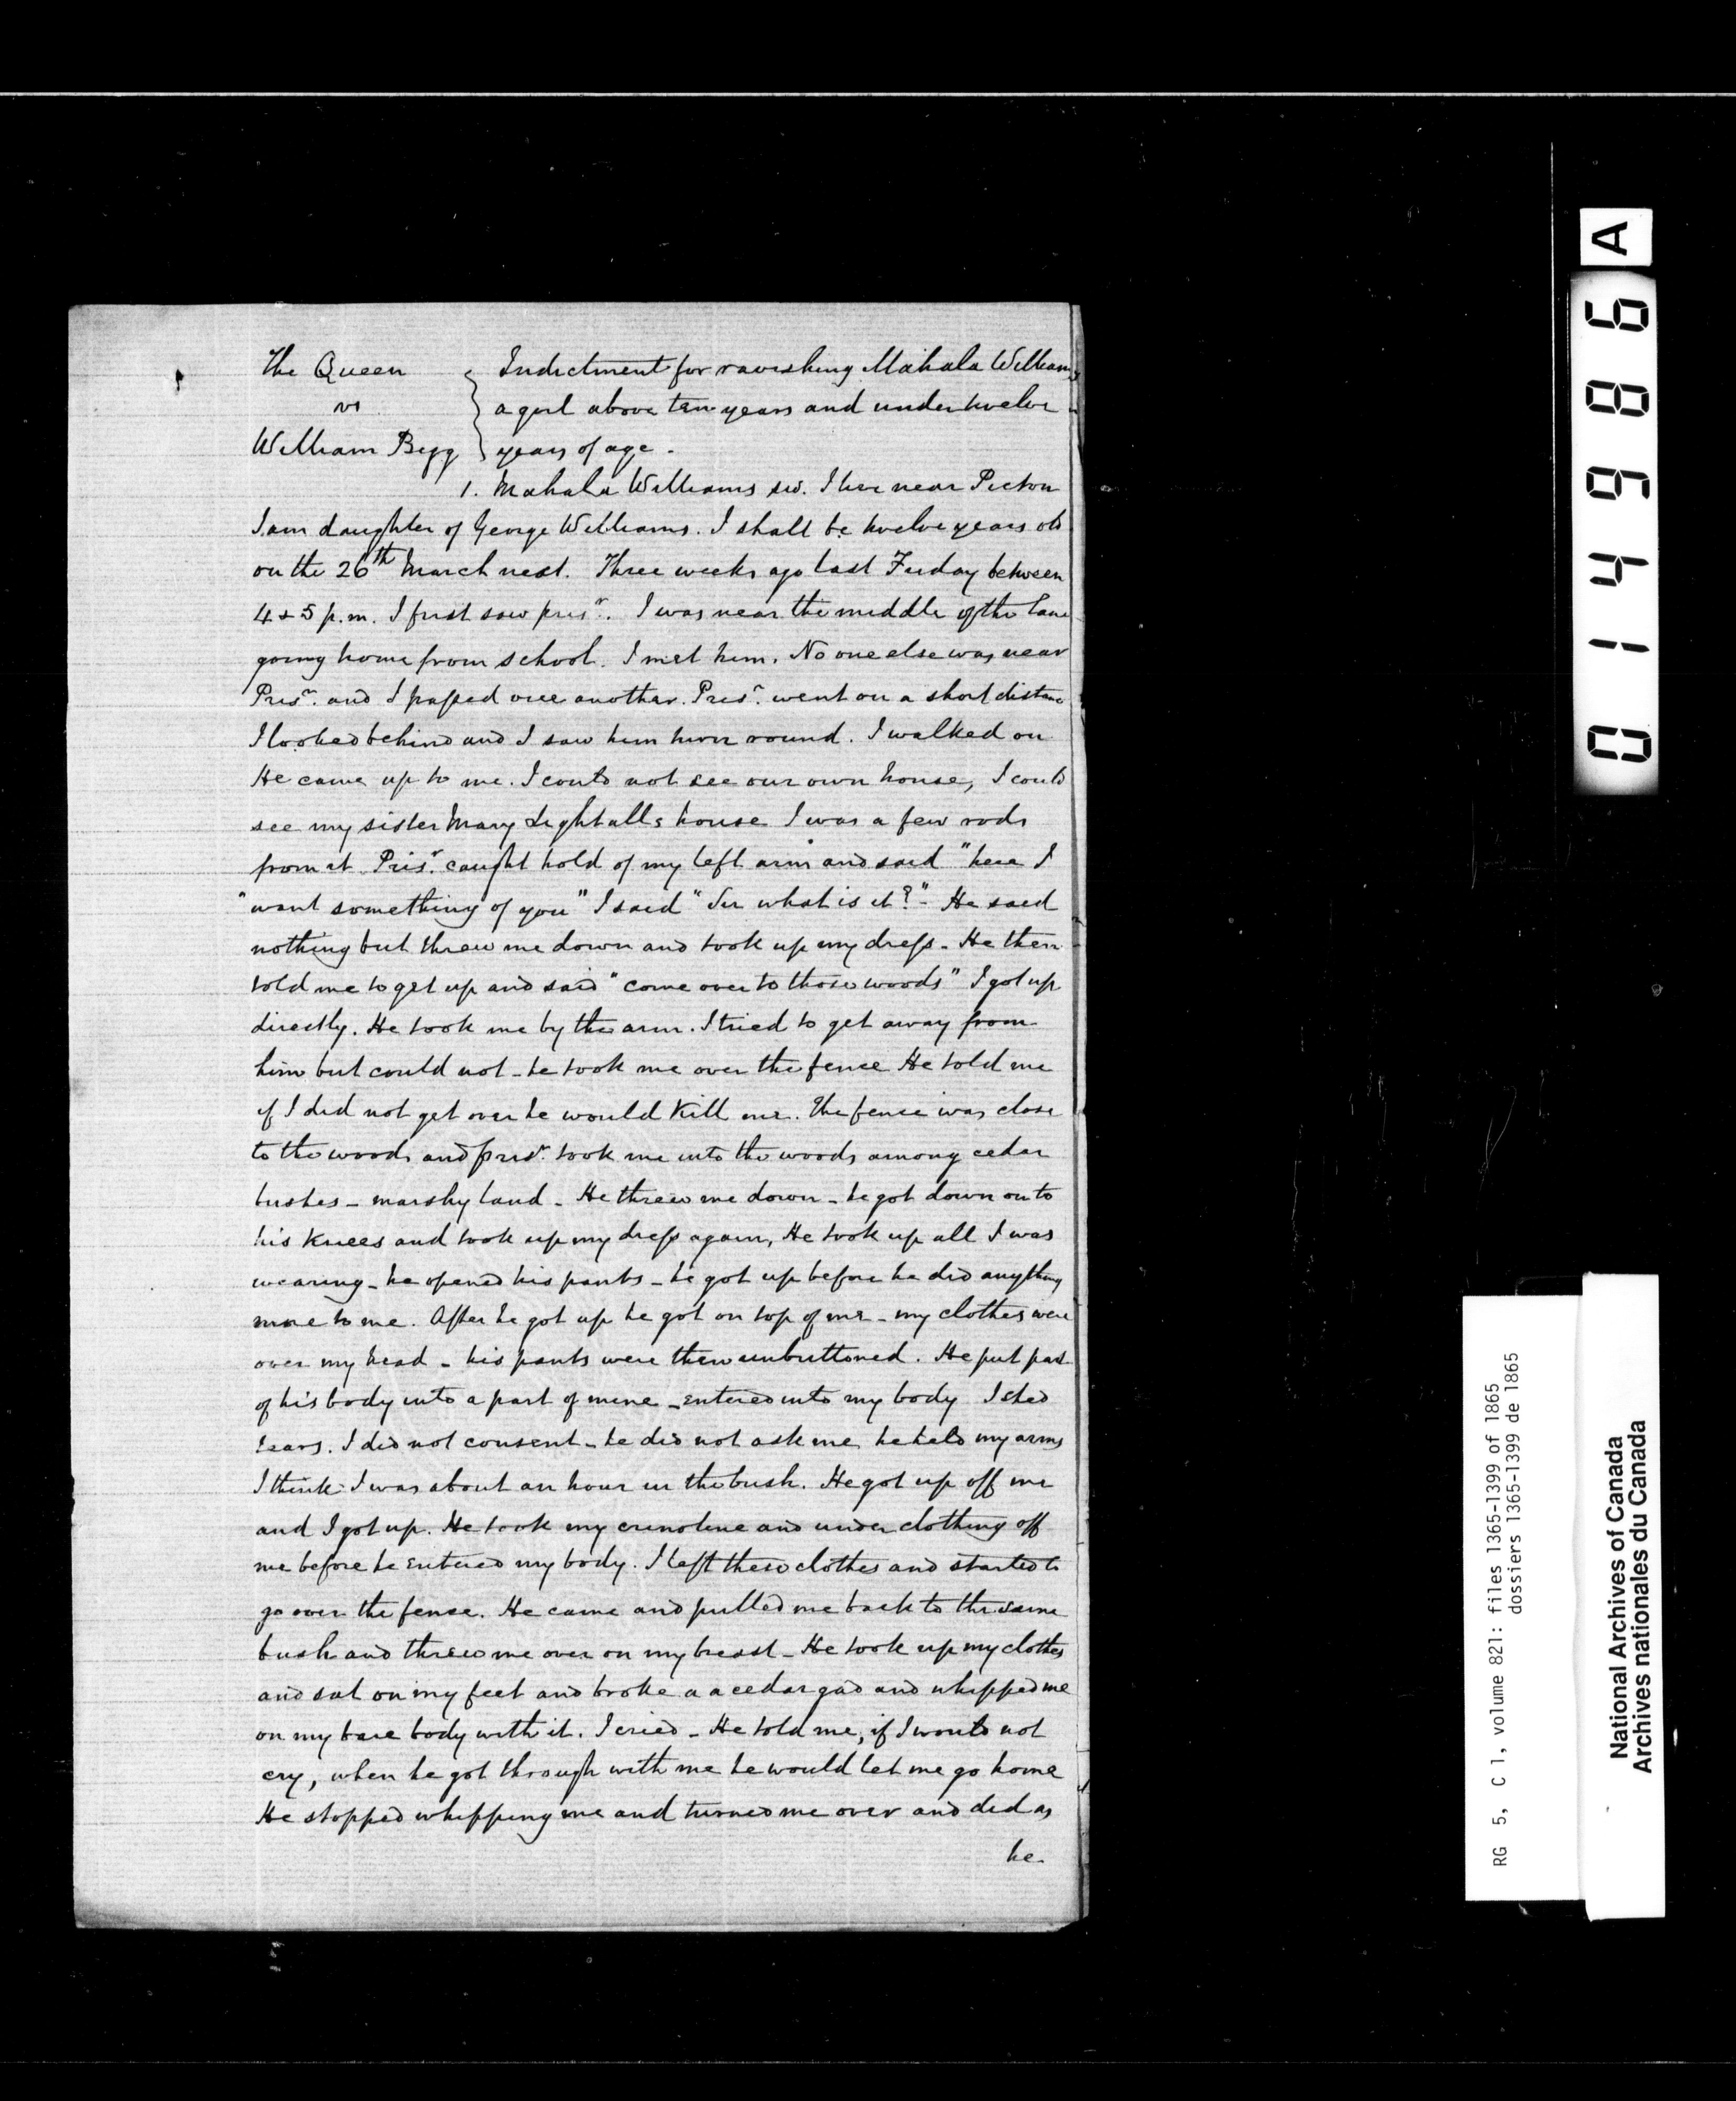 The Queen
vs
William Begg
Indictment for ravishing Mahala Williams
a girl above ten years and under twelve
years of age.
1. Mahala Williams sw. I live near Picton
I am daughter of George Williams. I shall be twelve years old
on the 26th March next. Three weeks ago last Friday between
4 & 5 p.m. I first saw prisr. I was near the middle of the lane
going home from school. I met him. No one else was near
Prisr. and I passed one another. Prisr. went on a short distance
I looked behind and I saw him turn round. I walked on
He came up to me. I could not see our own house, I could
see my sister Mary Lightalls house I was a few rods
from it Prisr. caught hold of my left arm and said "here I
"want something of you" I said "Sir what is it?" - He said
nothing but threw me down and took up my dress - He then
told me to get up and said "come over to those woods" I got up
directly. He took me by the arm. I tried to get away from
him but could not - he took me over the fence He told me
if I did not get over he would kill me. The fence was close
to the woods and prisr. took me into the woods among cedar
bushes - marshy land - He threw me down - he got down onto
his knees and took up my dress again, He took up all I was
wearing - he opened his pants - he got up before he did anything
more to me. After he got up he got on top of me - my clothes were
over my head - his pants were then unbuttoned. He put part
of his body into a part of mine - entered into my body I shed
tears. I did not consent - he did not ask me he held my arms
I think I was about an hour in the bush. He got up off me
and I got up. He took my crinoline and under clothing off
me before he entered my body. I left these clothes and started to
go over the fence. He came and pulled me back to the same
bush and threw me over on my breast - He took up my clothes
and sat on my feet and broke a a cedar gad and whipped me
on my bare body with it. I cried - He told me, if I would not
cry, when he got through with me he would let me go home
He stopped whipping me and turned me over and did as
he
01498 6 A
RG 5, C 1, volume 821: files 1365-1399 of 1865
dossiers 1365-1399 de 1865
National Archives of Canada
Archives nationales du Canada